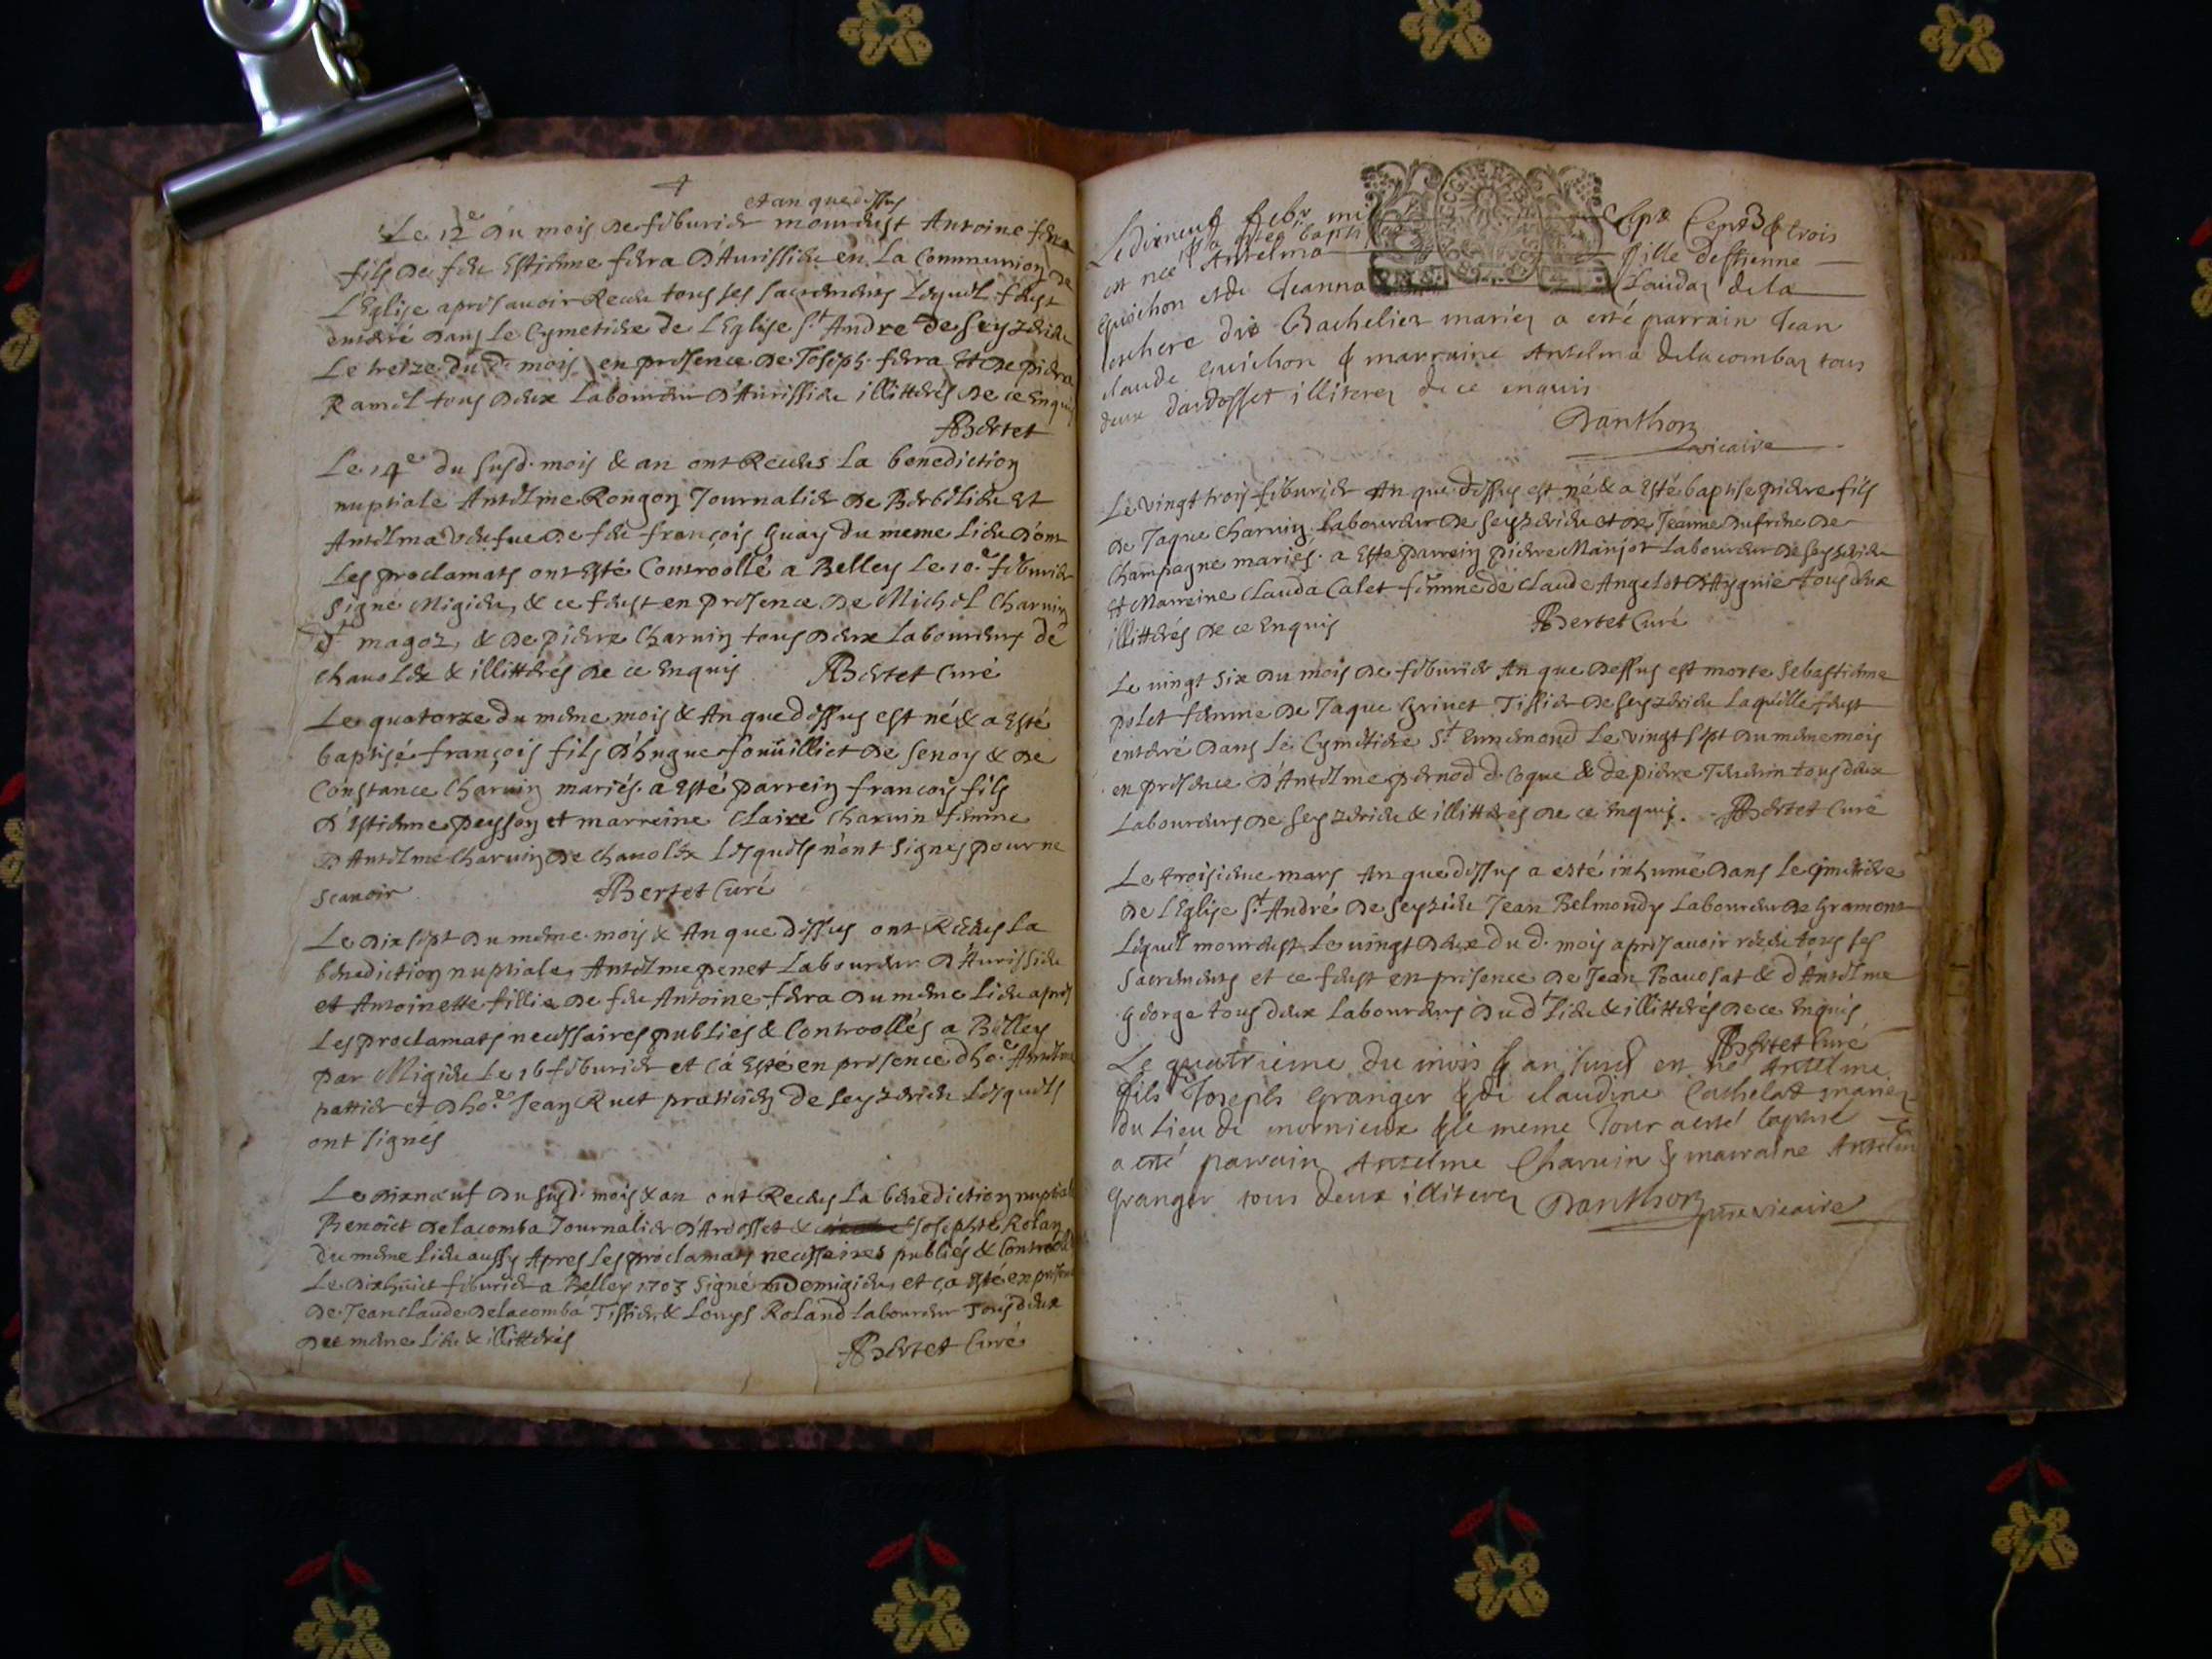 et an que dessus
Le 12e du mois de feburier mourust Antoine fera
fils de feu Estienne fera d'Aurissieu en La Communion de
L'Eglise apres avoir Receu tous ses sacrements Lequel feust
enterré dans Le Cymetiere de L'Eglise St André de Seyzerieu
Le treize du d. mois en presence de Joseph fera Et de pierre
Ramel tous deux Laboureur d'Aurissieu illitterés de ce Enquis
Bertet
Le 14e du susd. mois & an ont Receus La benediction
nuptiale Antelme Rongon Journalier de Et
Antelma veufue de feu françois Guay du meme Lieu dont
Les proclamats ont Esté Controollé a Belley Le 10e feburier
signé Migieu, & ce feust en presence de Michel Charuin
dt magoz, & de pierre Charuin tous deux Laboureurs de
chauoLex & illitterés de ce Enquis Bertet Curé
Le quatorze du meme mois & An que dessus est né & a Esté
baptisé françois fils d'hugue fouuilliet de Senoy & de
Constance Charuin mariés. a Esté parrein francois fils
d'Estienne peysson et marreine Claire Charuin femme
d'Antelme Charuin de Chauolex Lesquels n'ont signes pour ne
scauoir Bertet Curé
Le dix sept du meme mois & An que dessus ont Receus La
benediction nuptiale Antelme penet Laboureur d'Aurissieu
et Antoinette fillie de feu Antoine fera du meme Lieu apres
Les proclamats necessaires publiés & Controollés a Belley
par Migieu Le 16 feburier et ça Esté en presence d'ho.e Antelme
pattier et d'ho.e Jean Ruet praticien de Seyzerieu Lesquels
ont signés
Le dixneuf du susd. mois & an ont Receus La benediction nuptiale
Benoict Delacomba Journalier d'Ardosset & Josephte Rolan
du meme Lieu aussy Apres Les proclamats necessaires publiés & Controollés
Le dixhuict feburier a Belley 1703 signé demigieu, et ça esté en presence
de Jean Claude Delacomba Tissier, & Louys Roland laboureur Tous deux
du meme Lieu & illitterés Bertet Curé
Le dixneuf febr. mil sept Cent & trois
est née & a esteé bapt Antelma fille destienne
Guichon et de Jeanna Clauda de la
dit Bachelier mariez a esté parrain Jean
claude Guichon & marraine Antelma delacombaz tous
deux dardosset illiterez de ce enquis
Danthon
vicaire
Le vingt trois feburier An que dessus est né & a Esté baptisé pierre fils
de Jaque Charuin Laboureur de Seyzerieu et de Jeanne Dufrene de
Champagne mariés. a Esté parrein pierre Manjot Laboureur de Seyzerieu
Et Marreine Clauda Calet femme de Claude Angelot d'Aygnie tous deux
illitterés de ce Enquis Bertet Curé
Le vingt six du mois de feburier An que dessus est morte Sebastienne
polet femme de Jaque Grinet Tissier de Seyzerieu Laquelle feust
enterré dans Le Cymetiere St Ennemond Le vingt sept du meme mois
en presence d'Antelme pernod d. Coque & de pierre tous deux
Laboureurs de Seyzerieu & illitterés de ce Enquis. Bertet Curé
Le troisieme mars An que dessus a esté inhumé dans Le cymettiere
de L'Eglise St André de Seyzieu Jean Belmondy Laboureur de Gramont
Lequel mourust Le vingt deux du d. mois apres avoir receu tous ses
sacrements et ce feust en presence de Jean Bauosat & d'Antelme
George tous deux Laboureurs du dt Lieu & illitterés de ce Enquis
Bertet Curé
Le quatrieme du mois & an susd est né Antelme
fils Joseph Granger & de claudine Cachelat mariez
du Lieu de mornieux & le meme Jour a esté baptisé
a esté parrain Antelme Charuin & marraine Antelm
Granger tous deux illiterez Danthon vicaire